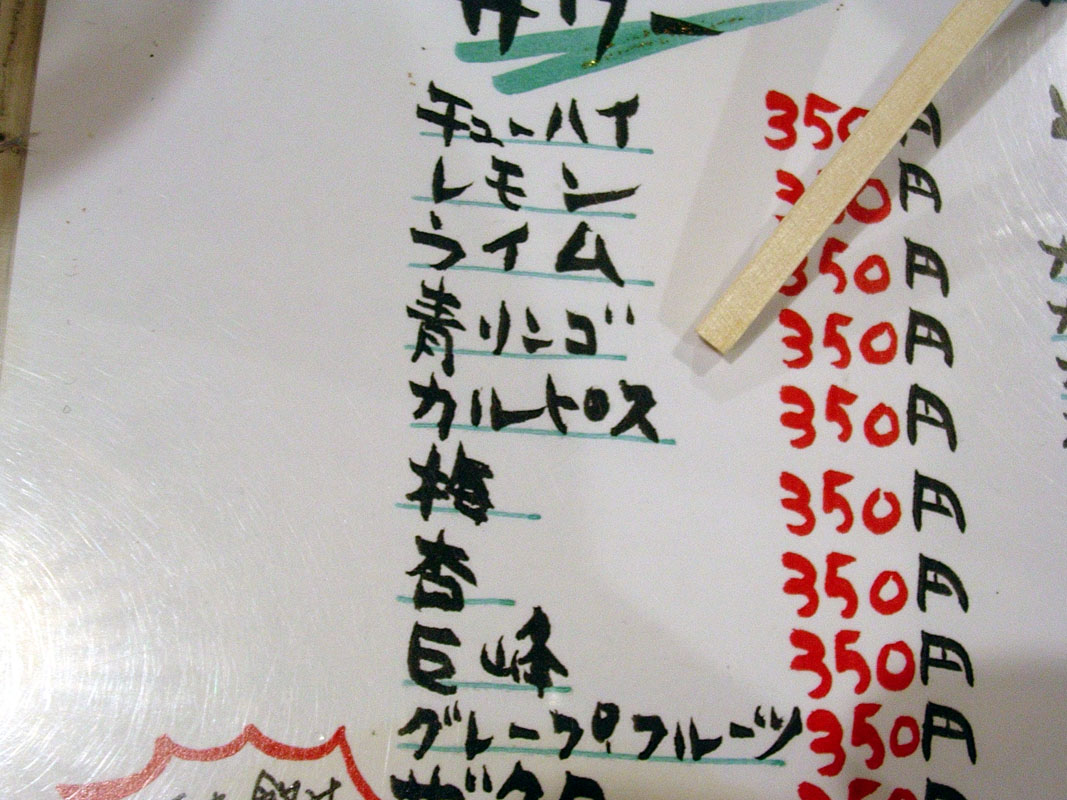 サワー
チューハイ 350円
レモン 350円
ライム 350円
青リンゴ 350円
カルトロス 350円
梅 350円
杏 350円
巨峰 350円
グレープフルーツ 350円
ザクロ 350